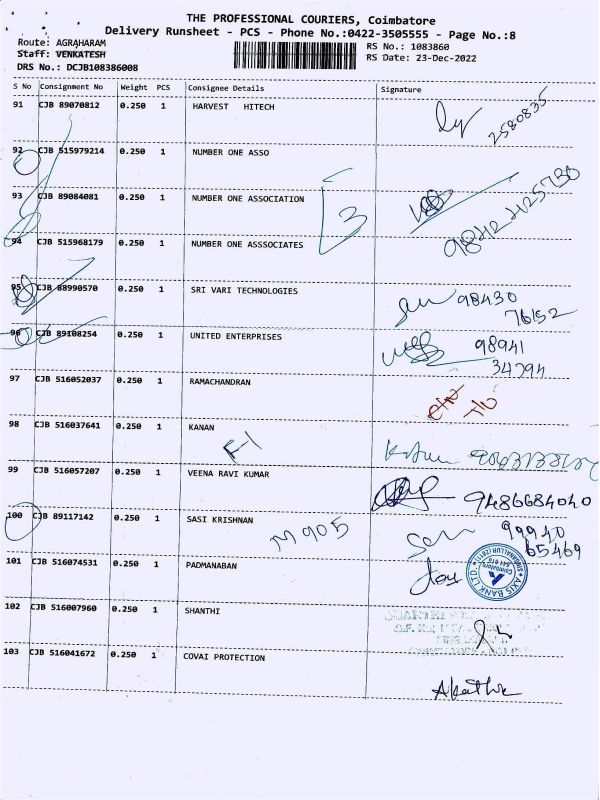 THE PROFESSIONAL COURIERS, Coimbatore
Delivery Runsheet - PCS - Phone No.:0422-3505555 - Page No.:8
Route: AGRAHARAM
Staff: VENKATESH
DRS No.: DCJB108386008
RS No.: 1083860
RS Date: 23-Dec-2022
S No Consignment No Weight PCS Consignee Details Signature
91 CJB 89070812 0.250 1 HARVEST HITECH
2580835
92 CJB 515979214 0.250 1 NUMBER ONE ASSO
93 CJB 89084081 0.250 1 NUMBER ONE ASSOCIATION
3
94 CJB 515968179 0.250 1 NUMBER ONE ASSSOCIATES
95 CJB 88990570 0.250 1 SRI VARI TECHNOLOGIES
98430
76152
96 CJB 89108254 0.250 1 UNITED ENTERPRISES
98941
34794
97 CJB 516052037 0.250 1 RAMACHANDRAN
98 CJB 516037641 0.250 1 KANAN
F1
99 CJB 516057207 0.250 1 VEENA RAVI KUMAR
9486684040
100 CJB 89117142 0.250 1 SASI KRISHNAN
M905
99940
65469
101 CJB 516074531 0.250 1 PADMANABAN
AXIS BANK LTD.
102 CJB 516007960 0.250 1 SHANTHI
103 CJB 516041672 0.250 1 COVAI PROTECTION